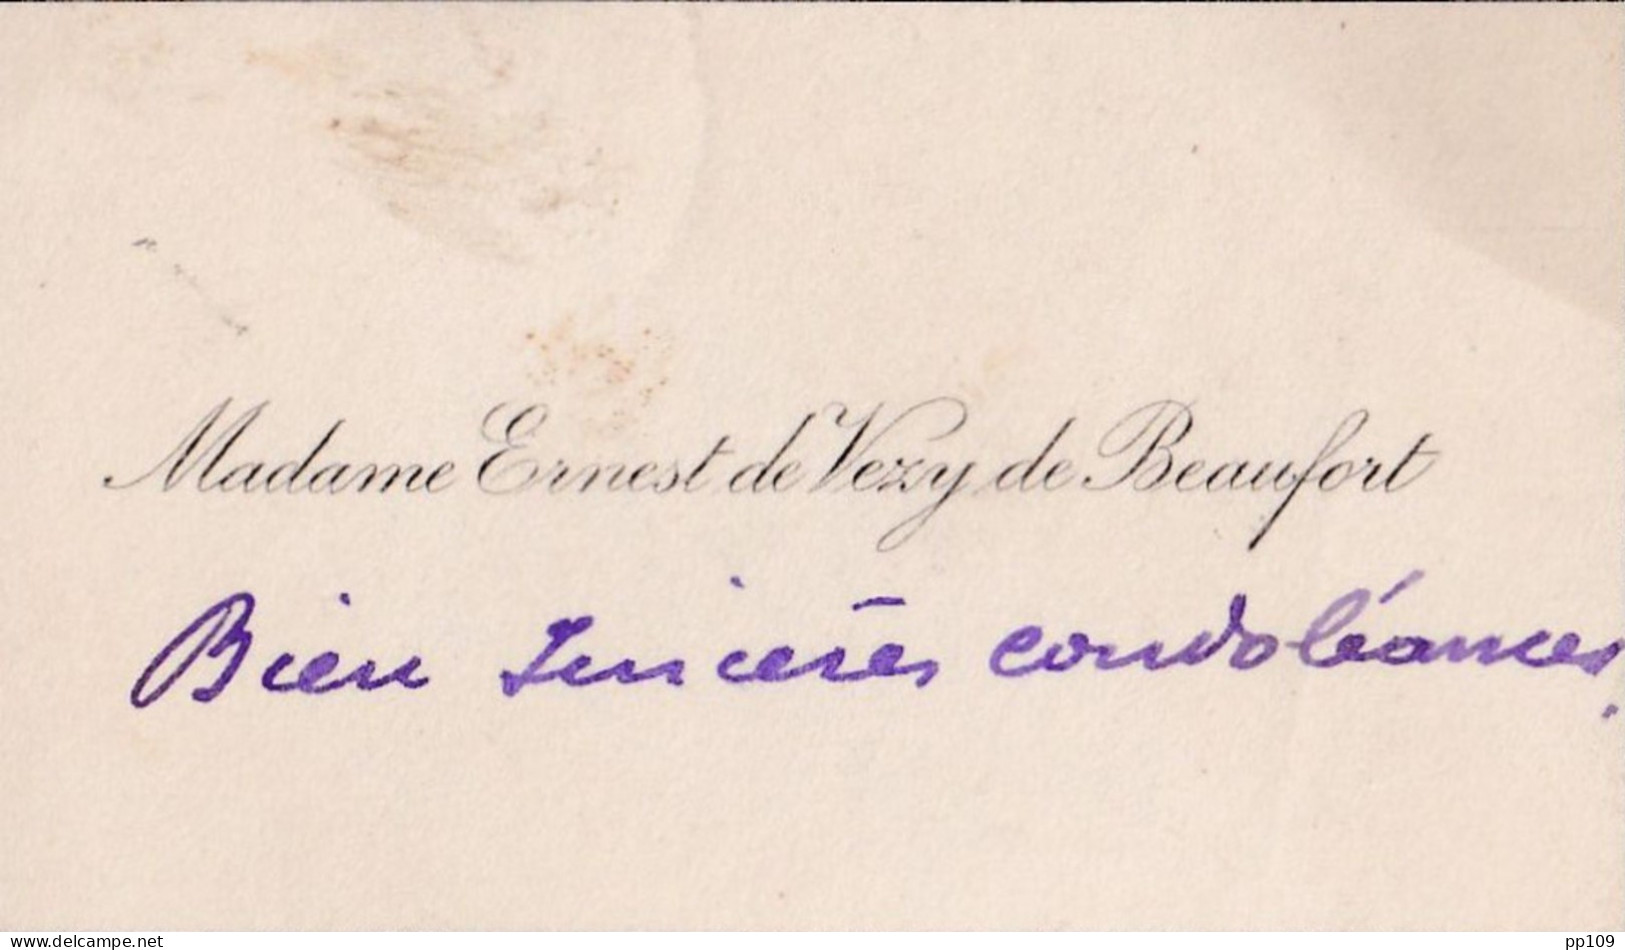 Madame Ernest de Vezy de Beaufort
Bien sincères condoléances.
www.delcampe.net
pp109